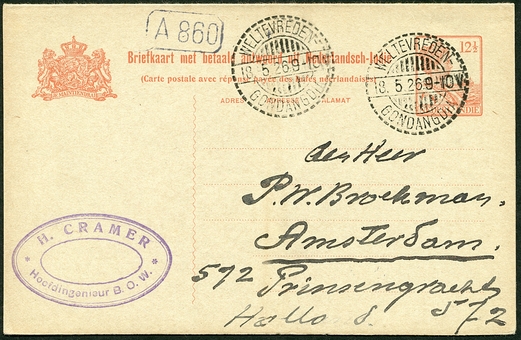 A 860
Briefkaart met betaald antwoord uit Nederlandsch-Indië
(Carte postale avec réponse payée des Indes néerlandaises)
ADRES ALAMAT
12½
WELTEVREDEN
18.5.26 9-10V
GONDANGDIA
WELTEVREDEN
18.5.26 9-10V
GONDANGDIA
den Heer
P.W. Broekman.
Amsterdam.
592 Prinsengracht
Hallo 8. 572
H. CRAMER
* Hoofdingenieur B.O.W. *